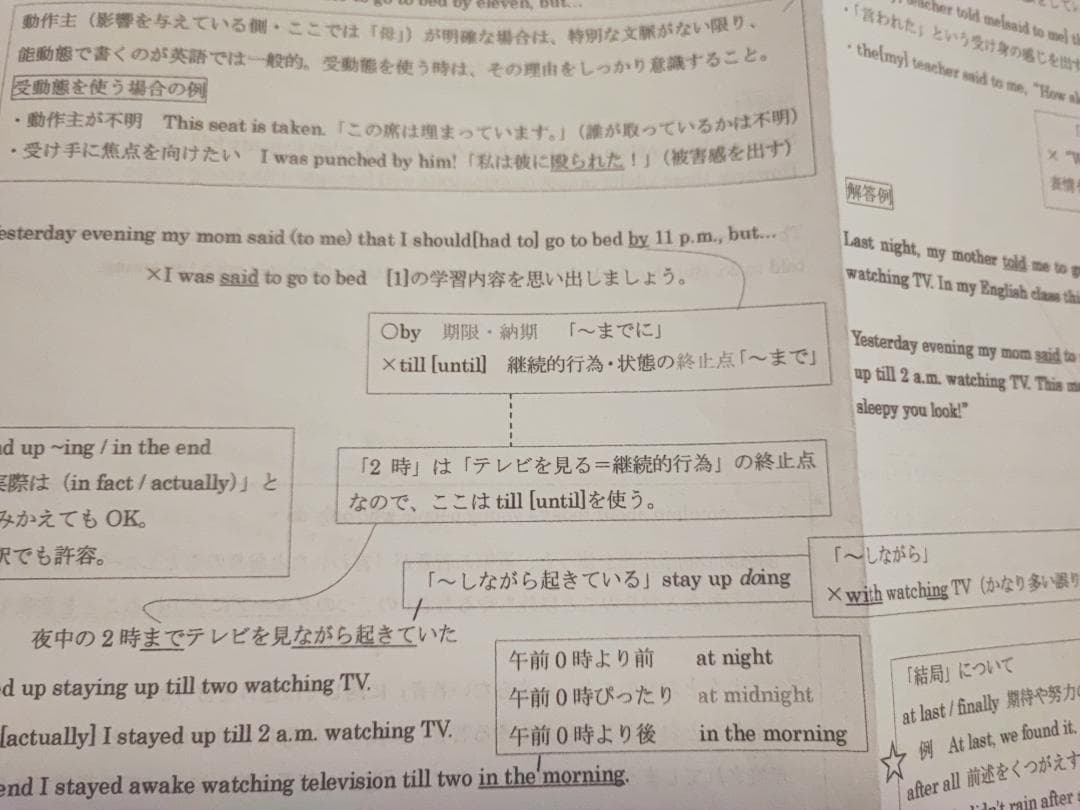 to go to bed by eleven, but...
動作主（影響を与えている側・ここでは「母」）が明確な場合は、特別な文脈がない限り、
能動態で書くのが英語では一般的。受動態を使う時は、その理由をしっかり意識すること。
受動態を使う場合の例
・動作主が不明 This seat is taken.「この席は埋まっています。」（誰が取っているかは不明）
・受け手に焦点を向けたい I was punched by him!「私は彼に殴られた！」（被害感を出す）
esterday evening my mom said (to me) that I should[had to] go to bed by 11 p.m., but...
×I was said to go to bed [1]の学習内容を思い出しましょう。
○by 期限・納期 「～までに」
×till [until] 継続的行為・状態の終止点「～まで」
「2 時」は「テレビを見る＝継続的行為」の終止点
なので、ここは till [until]を使う。
nd up ~ing / in the end
実際は（in fact / actually）」と
みかえても OK。
訳でも許容。
「～しながら起きている」stay up doing
「～しながら」
×with watching TV（かなり多い誤り
夜中の 2 時までテレビを見ながら起きていた
午前 0 時より前 at night
午前 0 時ぴったり at midnight
午前 0 時より後 in the morning
ed up staying up till two watching TV.
[actually] I stayed up till 2 a.m. watching TV.
end I stayed awake watching television till two in the morning.
teacher told me[said to me] t
・「言われた」という受け身の感じを出す
・the[my] teacher said to me, "How sl
解答例
Last night, my mother told me to g
watching TV. In my English class thi
Yesterday evening my mom said to
up till 2 a.m. watching TV. This m
sleepy you look!"
「結局」について
at last / finally 期待や努力の
例 At last, we found it.
after all 前述をくつがえす
rain after